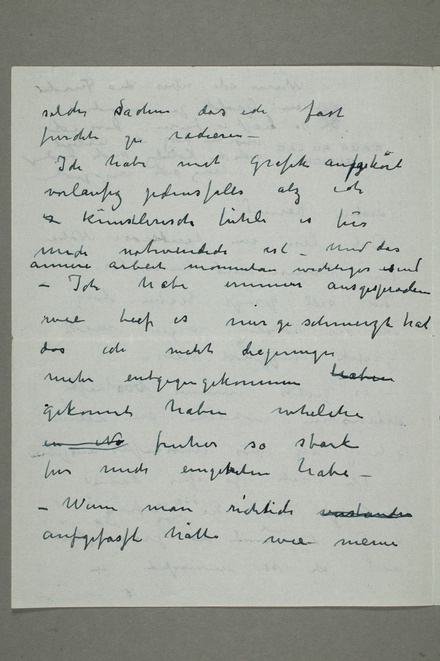 solche Sachen das ich fast
furchte zu radieren –
Ich habe mit Grafik aufgehört
vorlaufig jedenfalls alz ich
künstlerisch fühle es für
mich notwendich ist – und das
annere arbeit momentan wichtiger sind
– Ich habe immer ausgesprochen
wie tief es mir geschmerzt hat
das ich nicht diejeninge
mehr entgegengekommen haben
gekonnt haben whelche
früher so stark
für mich eingetreten habe –
– Wenn man richtich verstanden
aufgefasst hätte wie meine